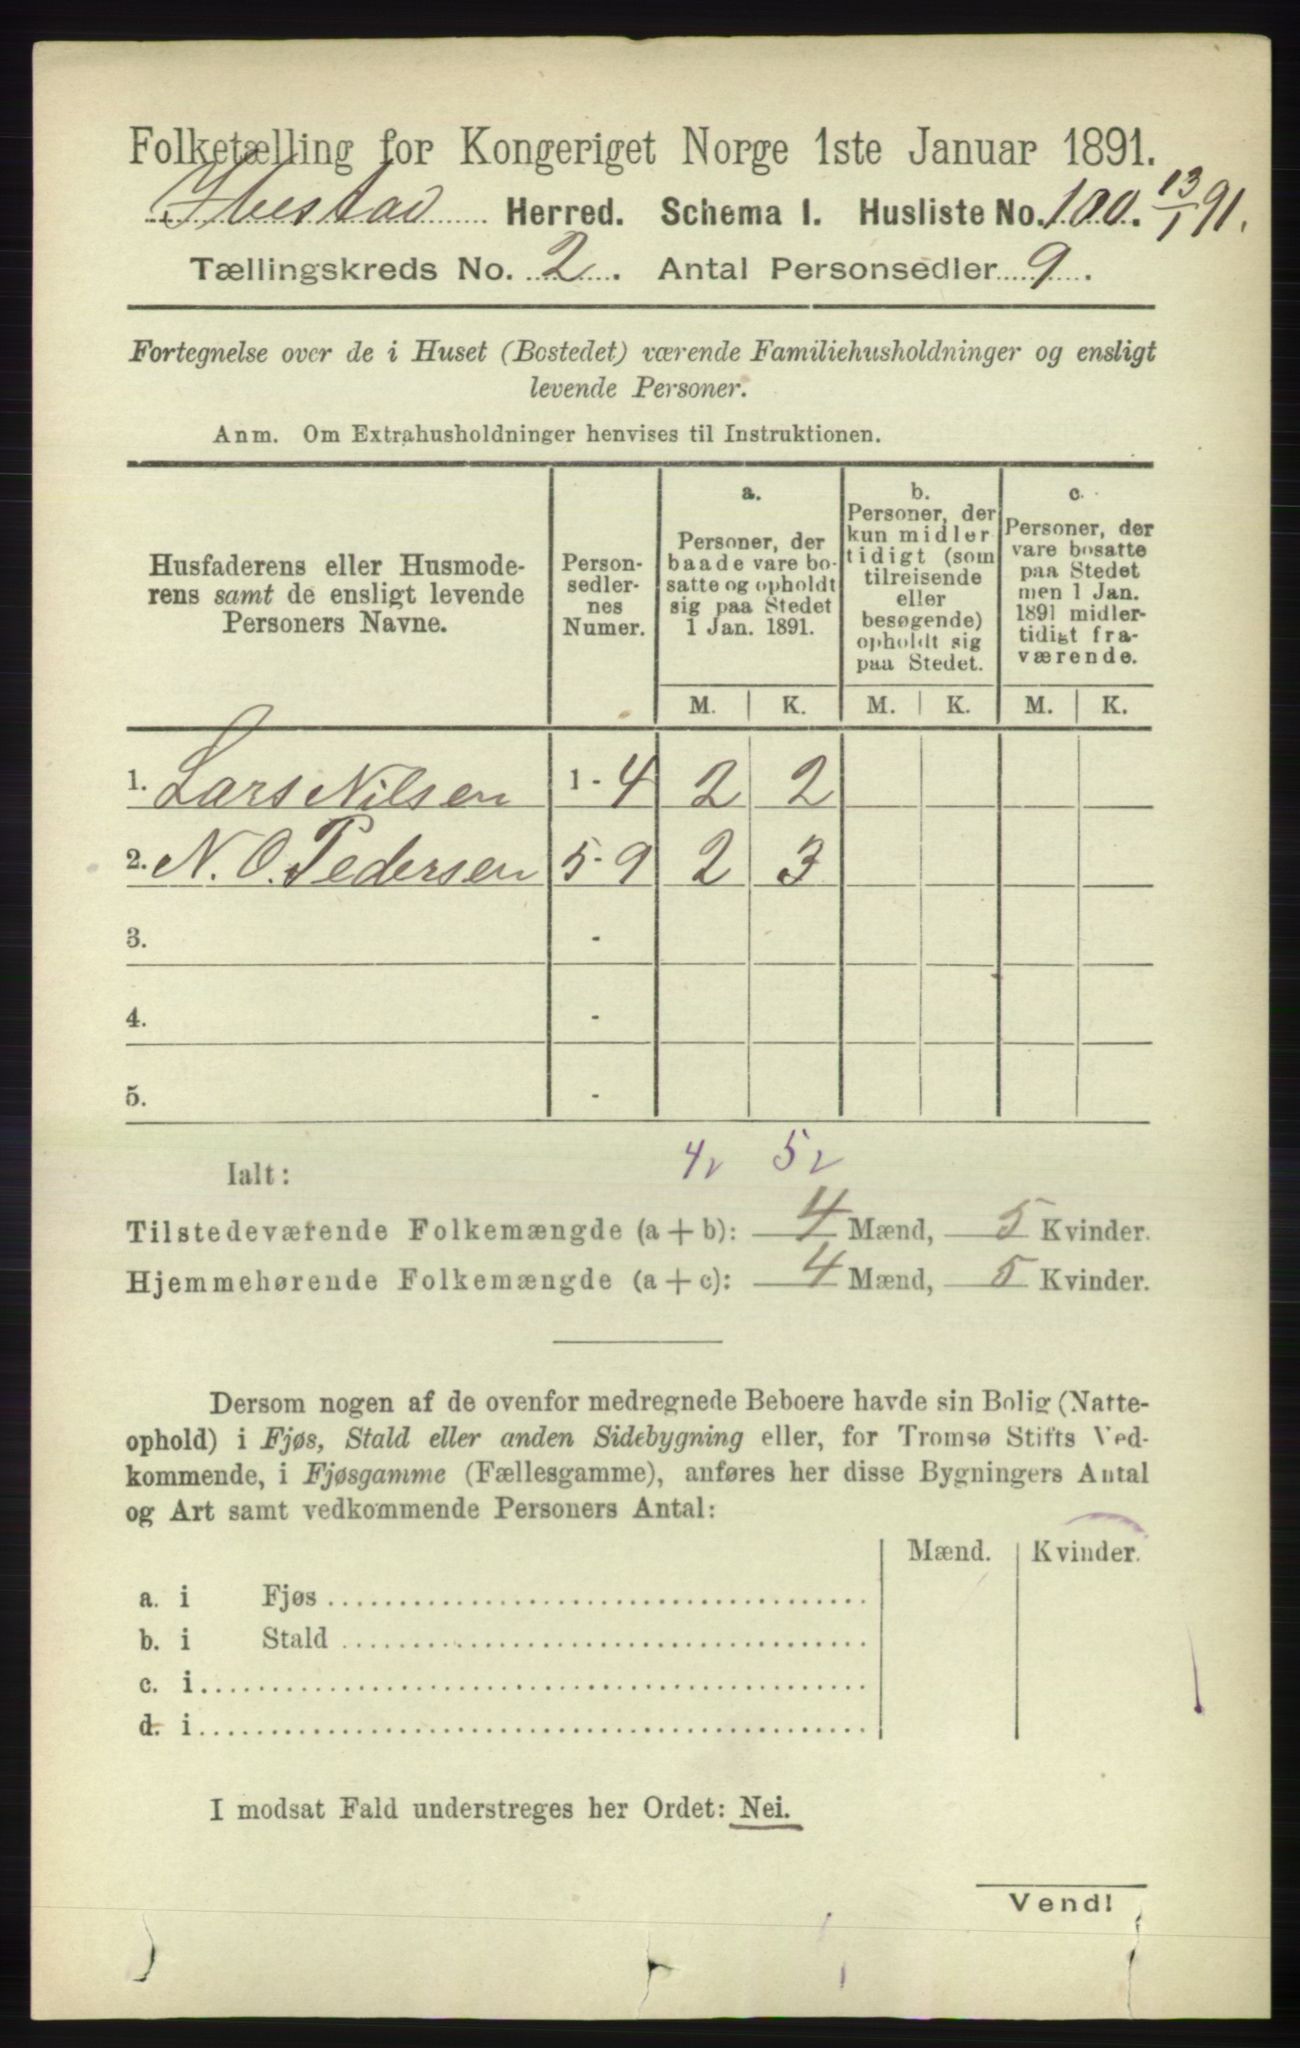 Folketælling for Kongeriget Norge 1ste Januar 1891.
Ibestad Herred. Schema 1. Husliste No. 100. 13/1 91.
Tællingskreds No. 2. Antal Personsedler 9.
Fortegnelse over de i Huset (Bostedet) værende Familiehusholdninger og ensligt
levende Personer.
Anm. Om Extrahusholdninger henvises til Instruktionen.
Husfaderens eller Husmode-
rens samt de ensligt levende
Personers Navne.
Person-
sedler-
nes
Numer.
a.
Personer, der
baade vare bo-
satte og opholdt
sig paa Stedet
1 Jan. 1891.
b.
Personer, der
kun midler-
tidigt (som
tilreisende
eller
besøgende)
opholdt sig
paa Stedet.
c.
Personer, der
vare bosatte
paa Stedet
men 1 Jan.
1891 midler-
tidigt fra-
værende.
M. K. M. K. M. K.
1. Lars Nilsen 1 - 4 2 2
2. N. O. Pedersen 5 - 9 2 3
3. -
4. -
5. -
Ialt: 4 5
Tilstedeværende Folkemængde (a + b): 4 Mænd, 5 Kvinder.
Hjemmehørende Folkemængde (a + c): 4 Mænd, 5 Kvinder.
Dersom nogen af de ovenfor medregnede Beboere havde sin Bolig (Natte-
ophold) i Fjøs, Stald eller anden Sidebygning eller, for Tromsø Stifts Ved-
kommende, i Fjøsgamme (Fællesgamme), anføres her disse Bygningers Antal
og Art samt vedkommende Personers Antal:
Mænd. Kvinder.
a. i Fjøs
b. i Stald
c. i
d. i
I modsat Fald understreges her Ordet: Nei.
Vend!